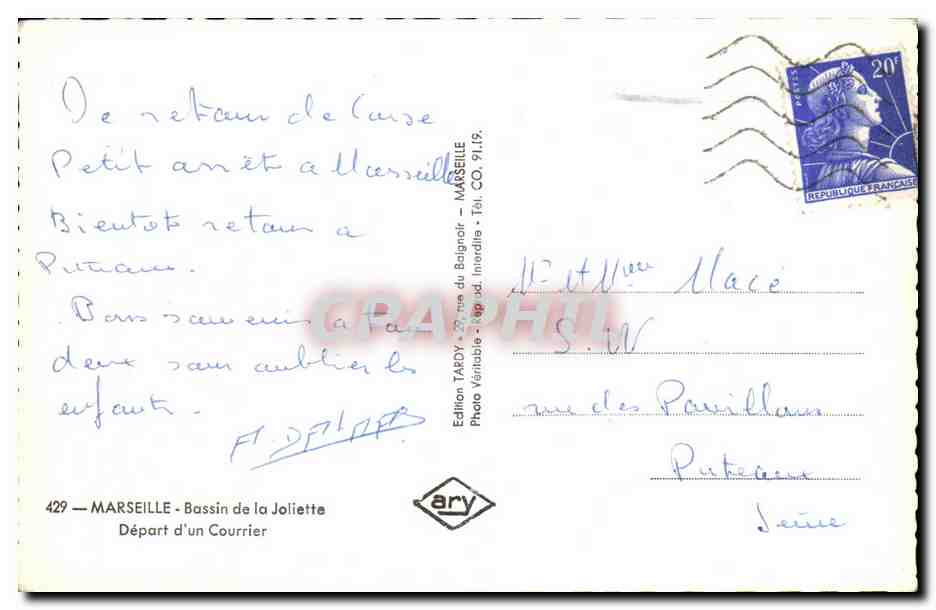 De retour de Corse
Petit arrêt a Marseille
Bientot retour a
Puteaux.
Bons souvenirs a tous
deux sans oublier les
enfants.
429 — MARSEILLE - Bassin de la Joliette
Départ d'un Courrier
Edition TARDY - 29, rue du Baignoir - MARSEILLE
Photo Véritable - Reprod. Interdite - Tél. CO. 91.19.
ary
CPARHTI
POSTES
20F
REPUBLIQUE FRANÇAISE
Mr et Mme Macé
rue des Pavillons
Puteaux
Seine